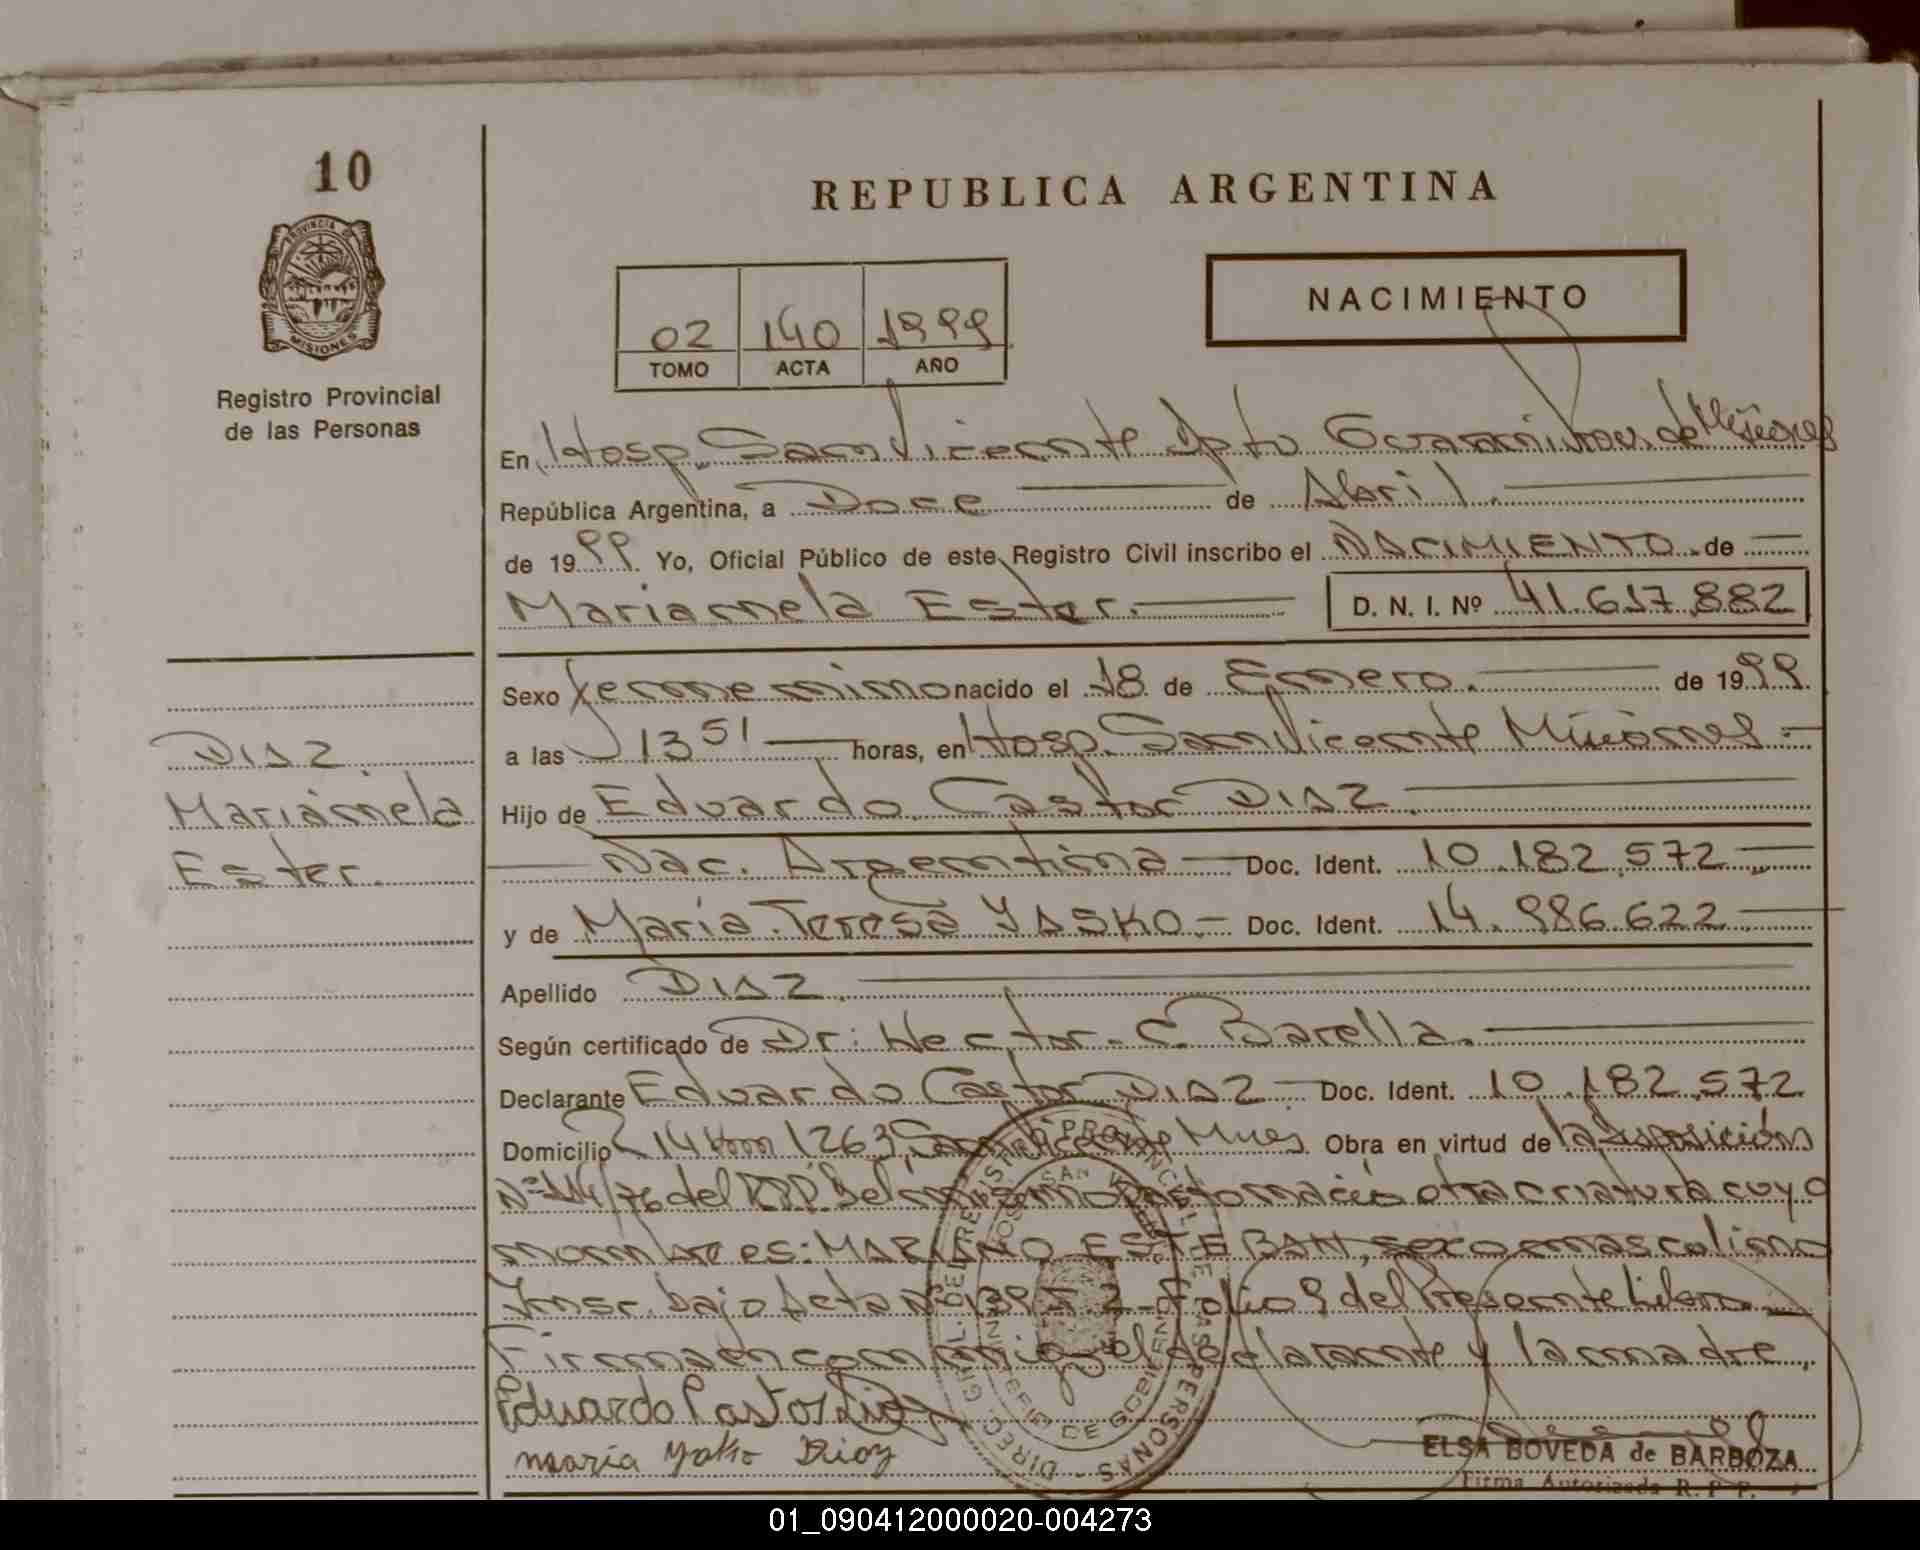 10
PROVINCIA DE
MISIONES
Registro Provincial
de las Personas
REPUBLICA ARGENTINA
02 140 1999
TOMO ACTA AÑO
NACIMIENTO
En Hosp. San Vicente Dpto Guaraní Prov. de Misiones
República Argentina, a Doce de Abril
de 1999 Yo, Oficial Público de este Registro Civil inscribo el NACIMIENTO de
Marianela Ester. D. N. I. Nº 41.617.882
Sexo femenino nacido el 18 de Enero. de 1999.
a las 13 51 horas, en Hosp. San Vicente Misiones
DIAZ
Marianela
Ester.
Hijo de Eduardo Castor DIAZ
Nac. Argentina Doc. Ident. 10.182.572
y de María Teresa YASKO Doc. Ident. 14.986.622
Apellido DIAZ
Según certificado de Dr: Hector C. Barella.
Declarante Eduardo Castor DIAZ Doc. Ident. 10.182.572
Domicilio 1263, San Vicente Mnes Obra en virtud de la disposición
Nº 114/76 del RPP. Del mismo parto nació otra criatura cuyo
nombre es: MARIANO ESTEBAN, sexo masculino
Insc. bajo Acta Nº 139 T. 2 Folio 9 del Presente Libro
Firman conmigo el declarante y la madre.
Eduardo Castor Diaz
maría Yasko Diaz
DIRECC. GRAL. DEL REGISTRO PROVINCIAL DE LAS PERSONAS
HOSP. SAN VICENTE
MINISTERIO DE GOBIERNO
ELSA BOVEDA de BARBOZA
Firma Autorizada R. P. P.
01_090412000020-004273